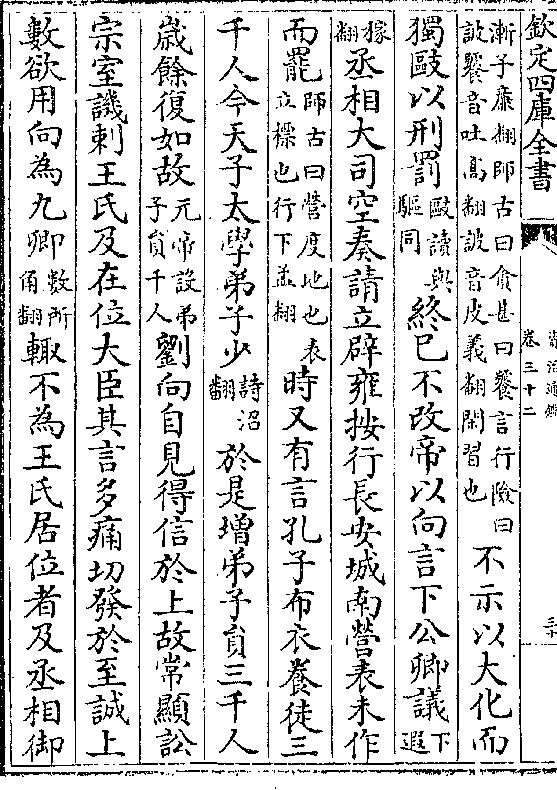 欽定四庫全書
資治通鑑
卷三十二
三十
漸子廉翻師古曰貪甚曰饕言行險曰
詖饕音吐高翻詖音皮義翻閑習也
不示以大化而
獨敺以刑罰敺讀與驅同終已不改帝以向言下公卿議下遐
掾翻丞相大司空奏請立辟雍按行長安城南營表未作
而罷師古曰營度地也表立標也行下孟翻時又有言孔子布衣養徒三
千人今天子太學弟子少詩沼翻於是增弟子員三千人
歲餘復如故元帝設弟子員千人劉向自見得信於上故常顯訟
宗室譏刺王氏及在位大臣其言多痛切發於至誠上
數欲用向為九卿數所角翻輒不為王氏居位者及丞相御